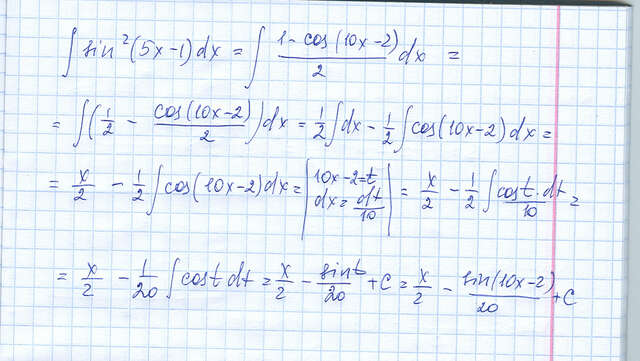 ∫ sin²(5x-1) dx = ∫ (1 - cos(10x-2))/2 dx =
= ∫(1/2 - cos(10x-2)/2)dx = 1/2 ∫dx - 1/2 ∫cos(10x-2)dx =
= x/2 - 1/2 ∫cos(10x-2)dx = | 10x-2=t dx = dt/10 | = x/2 - 1/2 ∫ cost·dt/10 =
= x/2 - 1/20 ∫cost dt = x/2 - sint/20 + C = x/2 - sin(10x-2)/20 + C